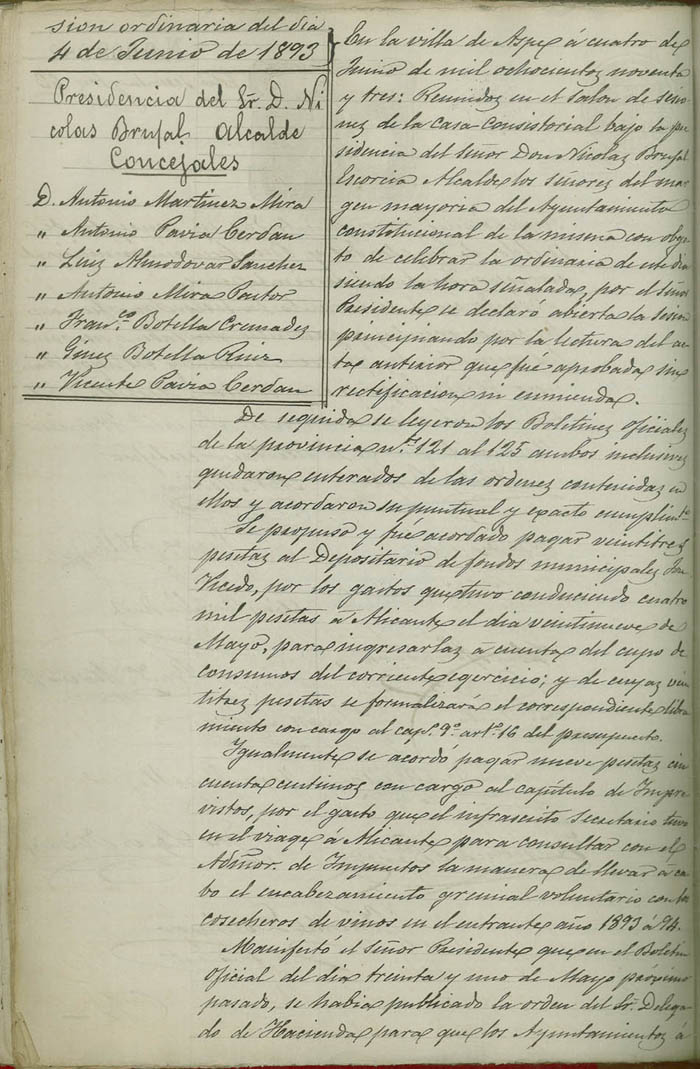 sion ordinaria del dia
4 de Junio de 1893
Presidencia del Sr. D. Ni
colas Brufal Alcalde
Concejales
D. Antonio Martinez Mira
" Antonio Pavia Cerdan
" Luis Almodovar Sanchez
" Antonio Mira Pastor
" Fran.co Botella Cremadez
" Ginez Botella Ruiz
" Vicente Pavia Cerdan
En la villa de Aspe á cuatro de
Junio de mil ochocientos noventa
y tres: Reunidoz en el Salon de sesio
nez de la Casa Consistorial bajo la pre
sidencia del señor Don Nicolaz Brufal
Escorcia Alcalde, los señorez del mar
gen mayoria del Ayuntamiento
constitucional de la misma con obge
to de celebrar la ordinaria de este dia
siendo la hora señalada, por el señor
Presidente se declaró abierta la sesion
principiando por la lectura del ac
ta anterior que fué aprobada sin
rectificacion ni enmienda.
De seguida se leyeron los Boletinez oficialez
de la provincia n.os 121 al 125 ambos inclusivez
quedaron enterados de las ordenez contenidaz en
ellos y acordaron su puntual y exacto cumplim.to
Se propuso y fué acordado pagar veintitrez
pesetaz al Depositario de fondos municipalez
Vicedo, por los gastos que tuvo conduciendo cuatro
mil pesetas á Alicante el dia veintinueve de
Mayo, para ingresarlaz á cuenta del cupo de
consumos del corriente egercicio; y de cuyaz vein
titrez pesetas se formalizará el correspondiente libra
miento con cargo al cap.o 9.o art.o 16 del presupuesto.
Igualmente se acordó pagar nueve pesetaz cin
cuenta centimoz con cargo al capítulo de Impre
vistos, por el gasto que el infrascrito Secretario tuvo
en el viage á Alicante para consultar con el
Admor. de Impuestos la manera de llevar á ca
bo el encabezamiento gremial voluntario con los
cosecheros de vinos en el entrante año 1893 á 94.
Manifestó el señor Presidente que en el Boletin
oficial del dia treinta y uno de Mayo próximo
pasado, se habia publicado la orden del Sr. Delega
do de Hacienda para que los Ayuntamientoz á